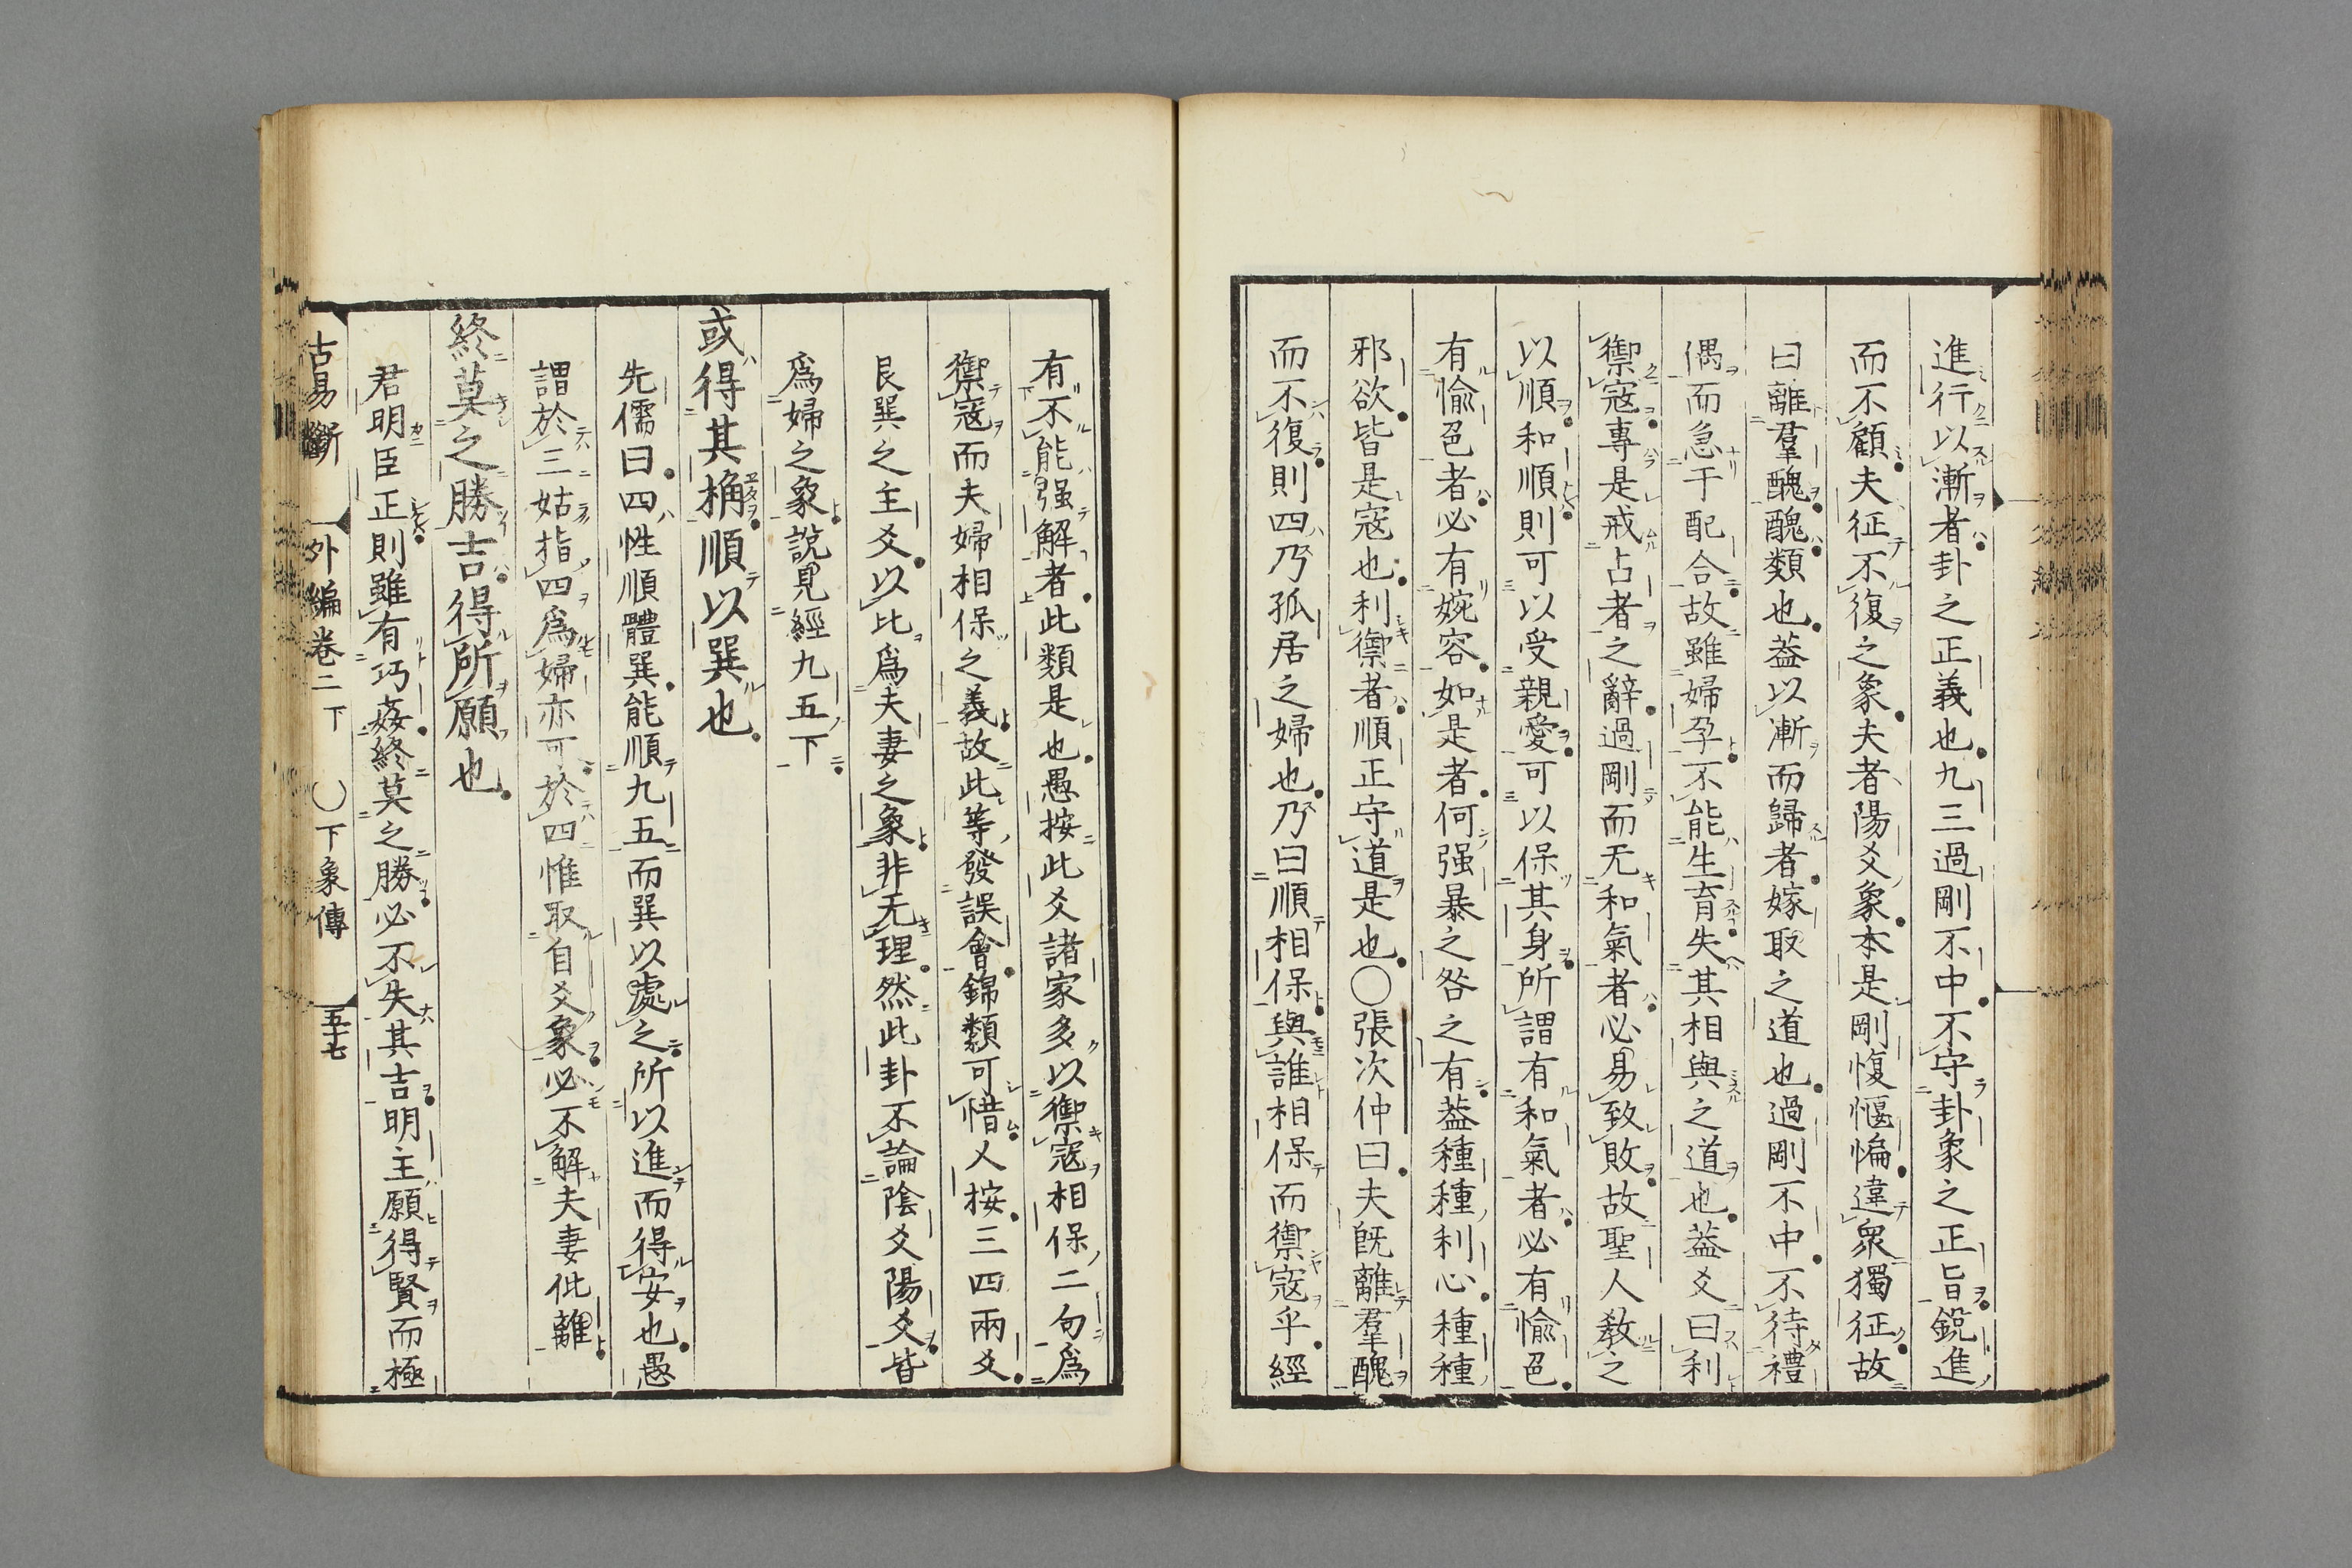 進行以漸者卦之正義也九三過剛不中不守卦象之正旨鋭進
而不顧夫征不復之象夫者陽爻象本是剛愎愝惼違衆獨征故
曰離羣醜醜類也葢以漸而歸者嫁取之道也過剛不中不待禮
偶而急干配合故雖婦孕不能生育失其相與之道也葢爻曰利
禦寇專是戒占者之辭過剛而无和氣者必易致敗故聖人教之
以順和順則可以受親愛可以保其身所謂有和氣者必有愉色
有愉色者必有婉容如是者何强暴之咎之有葢種種利心種種
邪欲皆是寇也利禦者順正守道是也○張次仲曰夫旣離羣醜
而不復則四乃孤居之婦也乃曰順相保與誰相保而禦寇乎經
有不能强解者此類是也愚按此爻諸家多以禦寇相保二句爲
禦寇而夫婦相保之義故此等發誤會錦類可惜又按三四兩爻
艮巽之主爻以比爲夫妻之象非无理然此卦不論陰爻陽爻皆
爲婦之象說見經九五下
或得其桷順以巽也
先儒曰四性順體巽能順九五而巽以處之所以進而得安也愚
謂於三姑指四爲婦亦可於四惟取自爻象必不解夫妻仳離
終莫之勝吉得所願也
君明臣正則雖有巧姦終莫之勝必不失其吉明主願得賢而極
古易斷 外編卷二下 ○下象傳 五十七